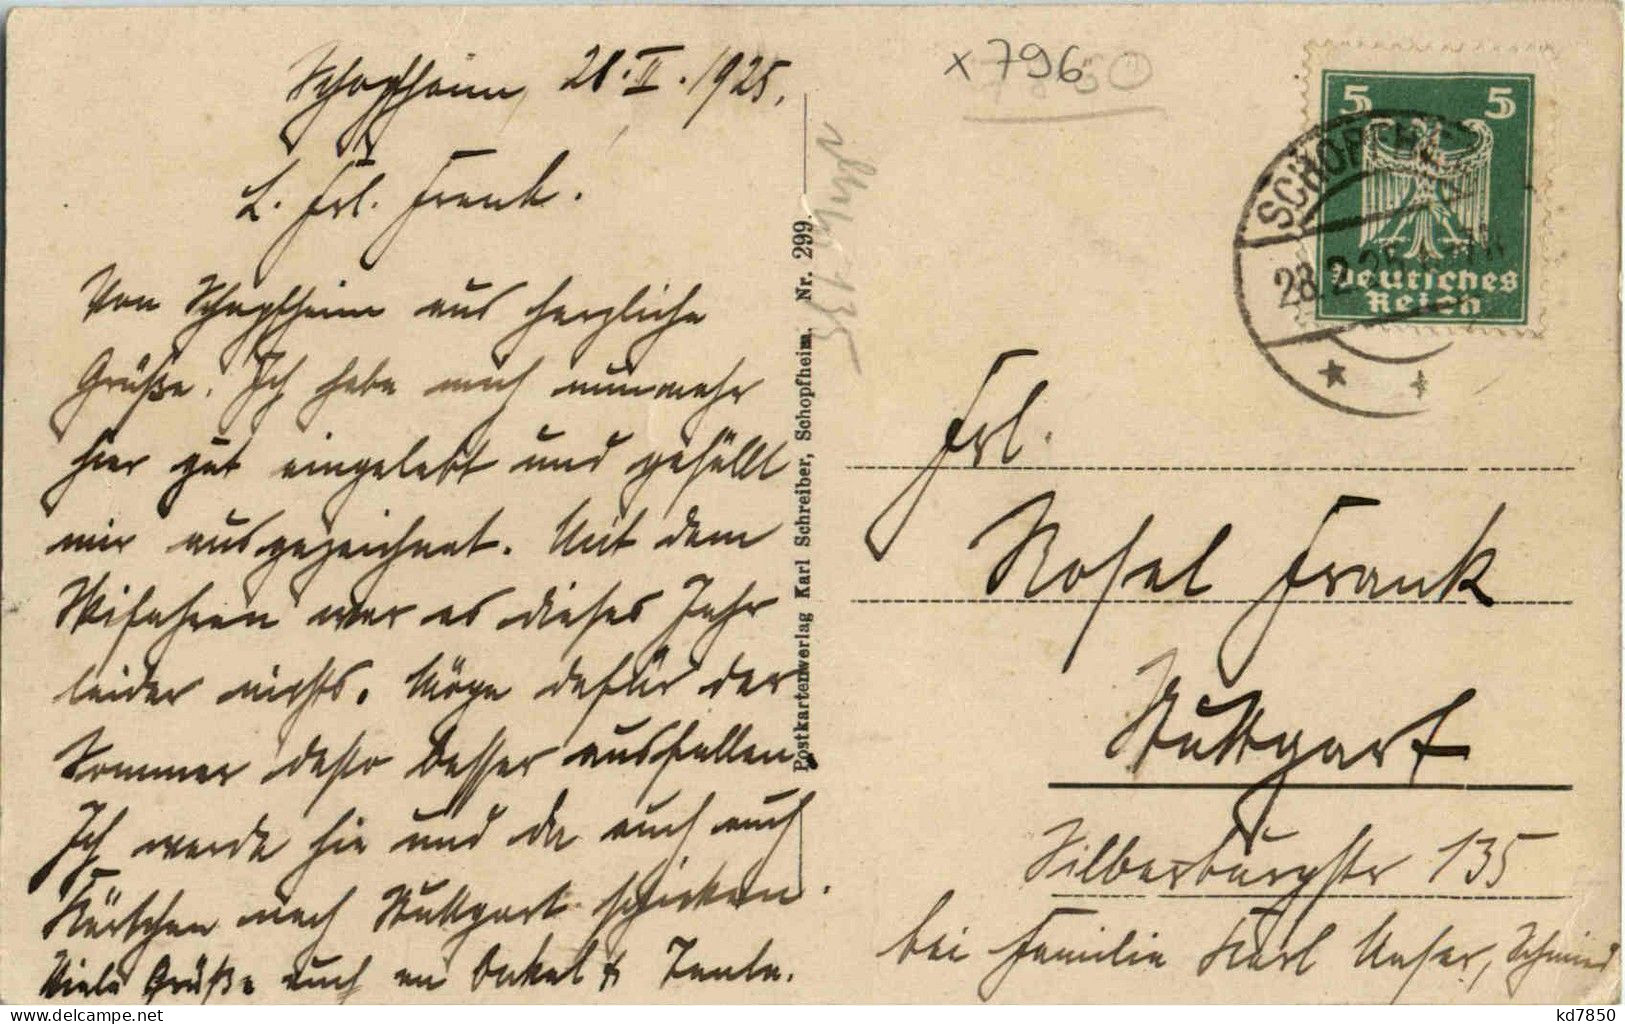 Schopfheim, 28.II.1925.
L. Frl. Frank.
Von Schopfheim aus herzliche
Grüße. Ich habe mich nunmehr
hier gut eingelebt und gefällt
mir ausgezeichnet. Mit dem
Skifahren war es dieses Jahr
leider nichts. Möge dafür der
Sommer desto besser ausfallen.
Ich werde hie und da auch
Kärtchen nach Stuttgart schicken.
Viele Grüße auch an Onkel & Tante.
Postkartenverlag Karl Schreiber, Schopfheim. Nr. 299.
135
x 796
5 5
Deutsches
Reich
SCHOPFHE
28.2.25
Frl.
Rosel Frank
Stuttgart
Silberburgstr 135
bei Familie Karl Unser, Schmied
kd7850